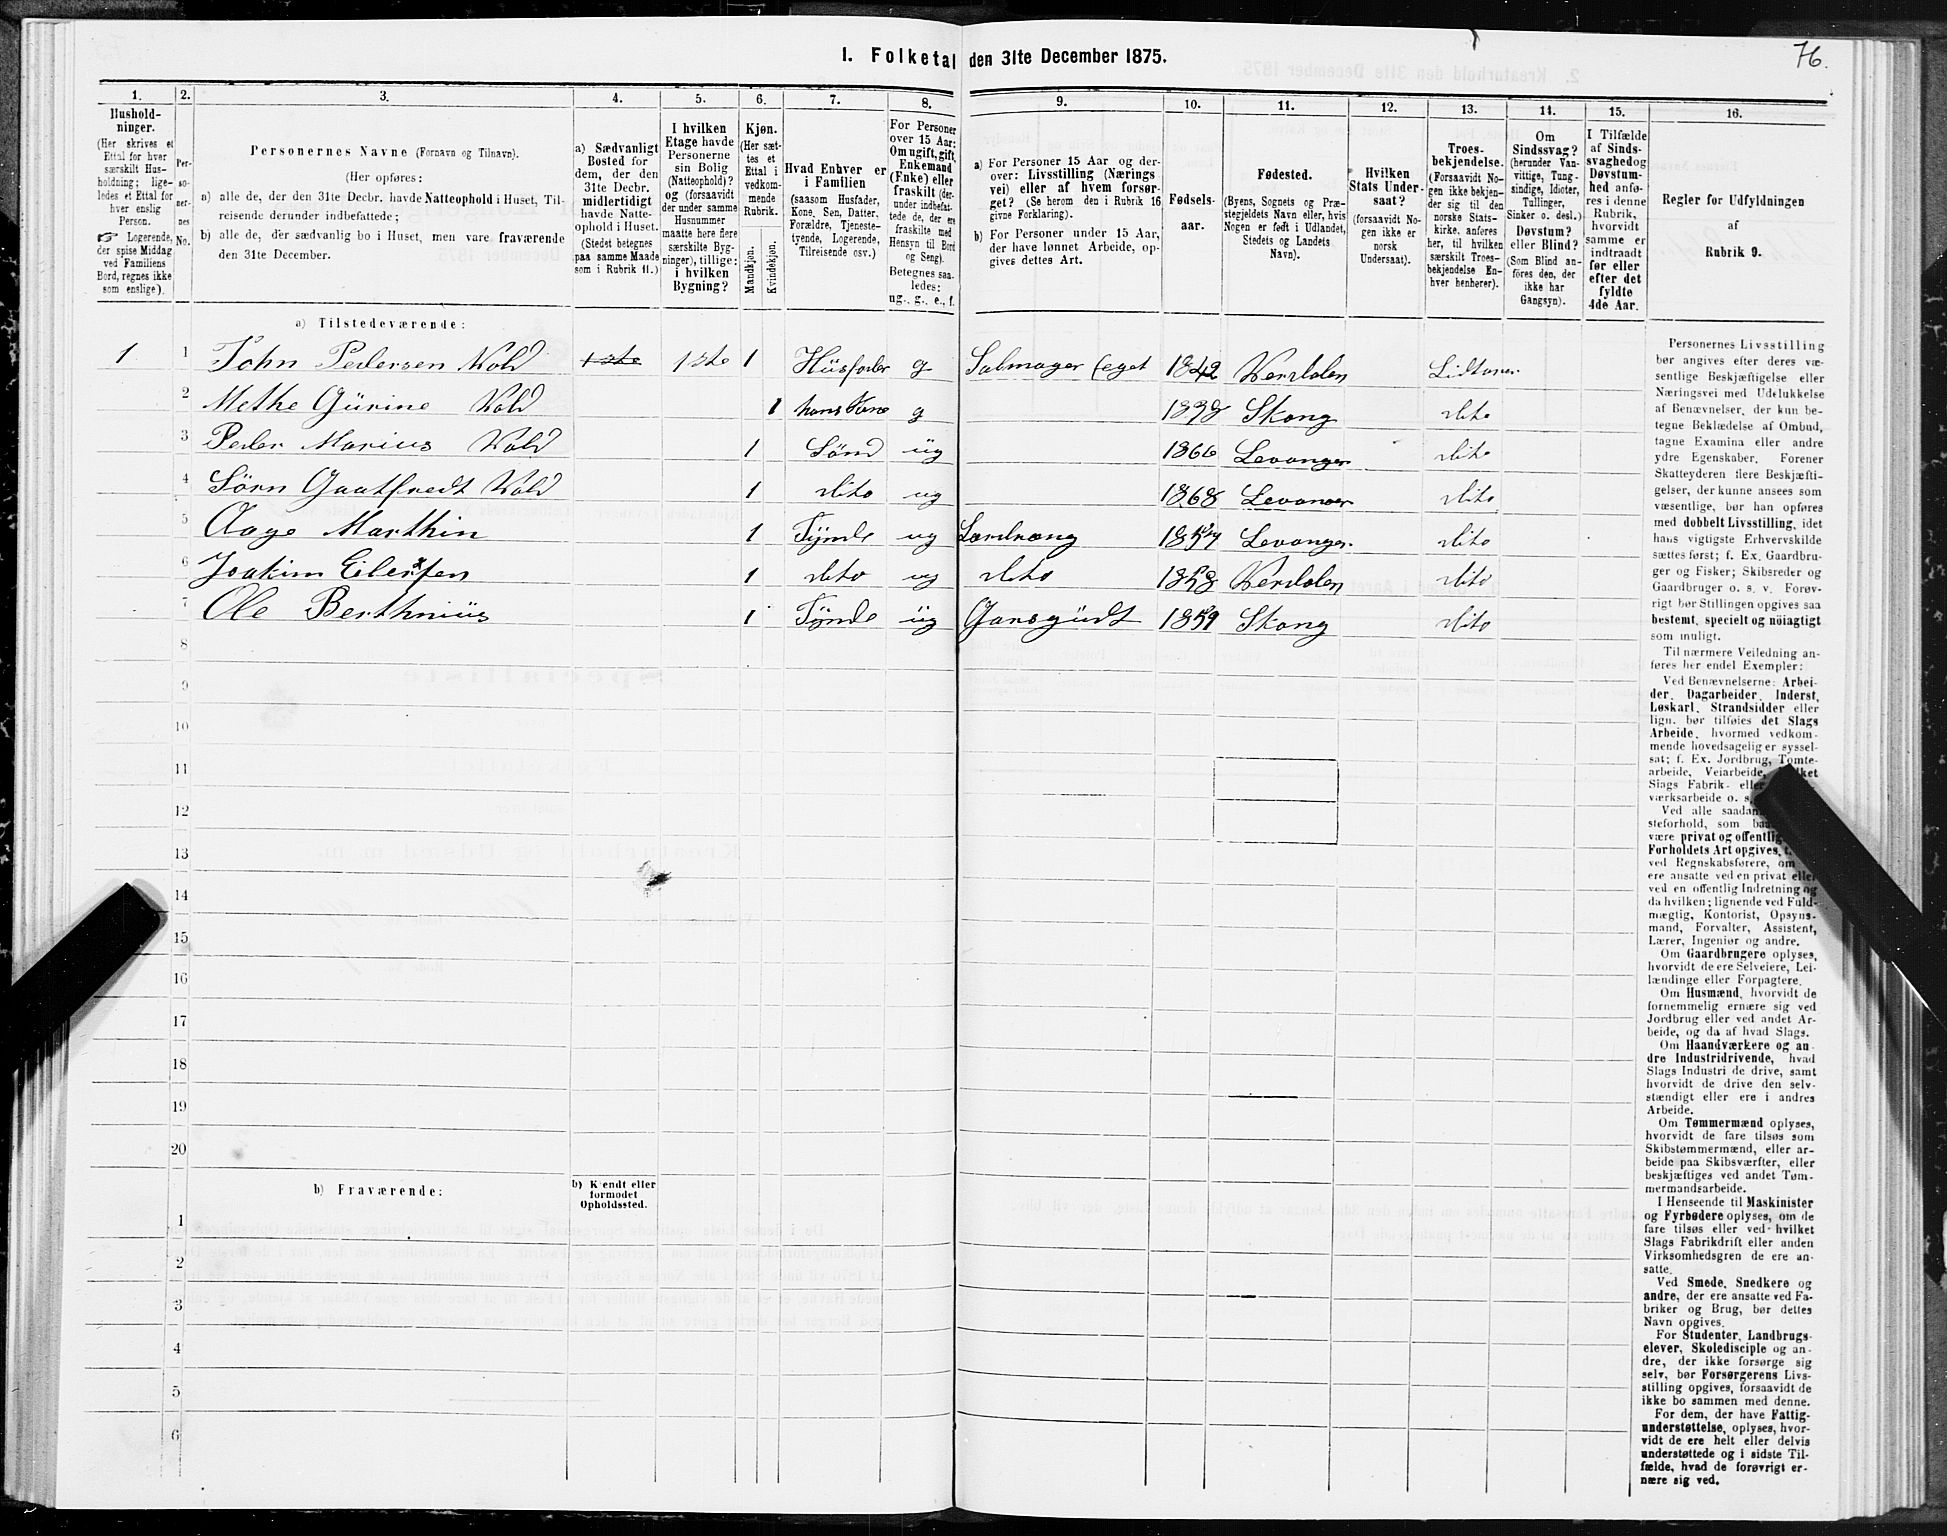 76.
1. Folketal den 31te December 1875.
1. 2. 3. 4. 5. 6. 7. 8. 9. 10. 11. 12. 13. 14. 15. 16.
Hushold-
ninger.
(Her skrives et
Ettal for hver
særskilt Hus-
holdning; lige-
ledes et Ettal for
hver enslig
Person.
☞ Logerende,
der spise Middag
ved Familiens
Bord, regnes ikke
som enslige).
Per-
so-
ner-
nes
No.
Personernes Navne (Fornavn og Tilnavn).
(Her opføres:
a) alle de, der den 31te Decbr. havde Natteophold i Huset, Til-
reisende derunder indbefattede;
b) alle de, der sædvanlig bo i Huset, men vare fraværende
den 31te December.
a) Sædvanligt
Bosted for
dem, der den
31te Decbr.
midlertidigt
havde Natte-
ophold i Huset.
(Stedet betegnes
paa samme Maade
som i Rubrik 11.)
I hvilken
Etage havde
Personerne
sin Bolig
(Natteophold)?
og (forsaavidt
der under samme
Husnummer
maatte høre flere
særskilte Byg-
ninger), tillige:
i hvilken
Bygning?
Kjøn.
(Her sæt-
tes et
Ettal i
vedkom-
mende
Rubrik.
Mandkjøn.
Kvindekjøn.
Hvad Enhver er
i Familien
(saasom Husfader,
Kone, Søn, Datter,
Forældre, Tjeneste-
tyende, Logerende,
Tilreisende osv.)
For Personer
over 15 Aar:
Om ugift, gift,
Enkemand
(Enke) eller
fraskilt (der-
under indbefat-
tede de, der ere
fraskilte med
Hensyn til Bord
og Seng).
Betegnes saa-
ledes:
ug., g., e., f.
a) For Personer 15 Aar og der-
over: Livsstilling (Nærings
vei) eller af hvem forsør-
get? (Se herom den i Rubrik 16
givne Forklaring).
b) For Personer under 15 Aar,
der have lønnet Arbeide, op-
gives dettes Art.
Fødsels-
aar.
Fødested.
(Byens, Sognets og Præ-
stegjeldets Navn eller, hvis
Nogen er født i Udlandet,
Stedets og Landets
Navn).
Hvilken
Stats Under-
saat?
(forsaavidt No-
gen ikke er
norsk
Undersaat).
Troes-
bekjendelse.
(Forsaavidt No-
gen ikke bekjen-
der sig til den
norske Stats-
kirke, anføres
her, til hvilken
særskilt Troes-
bekjendelse En-
hver henhører).
Om
Sindssvag?
(herunder Van-
vittige, Tung-
sindige, Idioter,
Tullinger,
Sinker o. desl.)
Døvstum?
eller Blind?
(Som Blind an-
føres den, der
ikke har
Gangsyn).
I Tilfælde
af Sinds-
svaghed og
Døvstum-
hed anfø-
res i denne
Rubrik,
hvorvidt
samme er
indtraadt
før eller
efter det
fyldte
4de Aar.
Regler for Udfyldningen
af
Rubrik 9.
a) Tilstedeværende:
1 1 John Pedersen Vold 1ste 1ste 1 Hüsfader g Salmager eget 1842 Verdalen
2 Methe Gürine Vold 1 hans Kone g 1838 Skong dito
3 Peder Marius Vold 1 Sønd üg 1866 Levanger dito
4 Vold 1 dito ug 1868 dito
5 Aage Marthin 1 Tÿnde ug 1857 Levanger dito
6 Joakim 1 dito ug dito 1858 Verdalen dito
7 Ole 1 Tÿnde üg 1859 Skong dito
8
9
10
11
12
13
14
15
16
17
18
19
20
b) Fraværende:
b) Kjendt eller
formodet
Opholdssted.
1
2
3
4
5
6
Personernes Livsstilling
bør angives efter deres væ-
sentlige Beskjæftigelse eller
Næringsvei med Udelukkelse
af Benævnelser, der kun be-
tegne Beklædelse af Ombud,
tagne Examina eller andre
ydre Egenskaber. Forener
Skatteyderen flere Beskjæfti-
gelser, der kunne ansees som
væsentlige, bør han opføres
med dobbelt Livsstilling, idet
hans vigtigste Erhvervskilde
sættes først; f. Ex. Gaardbru-
ger og Fisker; Skibsreder og
Gaardbruger o. s. v. Forøv-
rigt bør Stillingen opgives saa
bestemt, specielt og nöiagtigt
som muligt.
Til nærmere Veiledning an-
føres her endel Exempler:
Ved Benævnelserne: Arbei-
der, Dagarbeider, Inderst,
Løskarl, Strandsidder eller
lign. bør tilføies det Slags
Arbeide, hvormed vedkom-
mende hovedsagelig er syssel-
sat; f. Ex. Jordbrug, Tomte-
arbeide, Veiarbeide,
Slags Fabrik- eller
værksarbeide o. s.
Ved alle
steforhold, som
være privat og
Forholdets Art opgives,
ved Regnskabsførere, om
ere ansatte ved en privat eller
ved en offentlig Indretning og
da hvilken; lignende ved Fuld-
mægtig, Kontorist, Opsyns-
mand, Forvalter, Assistent,
Lærer, Ingeniør og andre.
Om Gaardbrugere oplyses,
hvorvidt de ere Selveiere, Lei-
lændinge eller Forpagtere.
Om Husmænd, hvorvidt de
fornemmelig ernære sig ved
Jordbrug eller ved andet Ar-
beide, og da af hvad Slags.
Om Haandværkere og an-
dre Industridrivende, hvad
Slags Industri de drive, samt
hvorvidt de drive den selv-
stændigt eller ere i andres
Arbeide.
Om Tømmermænd oplyses,
hvorvidt de fare tilsøs som
Skibstømmermænd, eller ar-
beide paa Skibsværfter, eller
beskjæftiges ved andet Tøm-
mermandsarbeide.
I Henseende til Maskinister
og Fyrbødere oplyses, om de
fare tilsøs eller ved hvilket
Slags Fabrikdrift eller anden
Virksomhedsgren de ere an-
satte.
Ved Smede, Snedkere og
andre, der ere ansatte ved Fa-
briker og Brug, bør dettes
Navn opgives.
For Studenter, Landbrugs-
elever, Skoledisciple og an-
dre, der ikke forsørge sig
selv, bør Forsørgerens Livs-
stilling opgives, forsaavidt de
ikke bo sammen med denne.
For dem, der have Fattig-
understøttelse, oplyses, hvor-
vidt de ere helt eller delvis
understøttede og i sidste Til-
fælde, hvad de forøvrigt er-
nære sig ved.